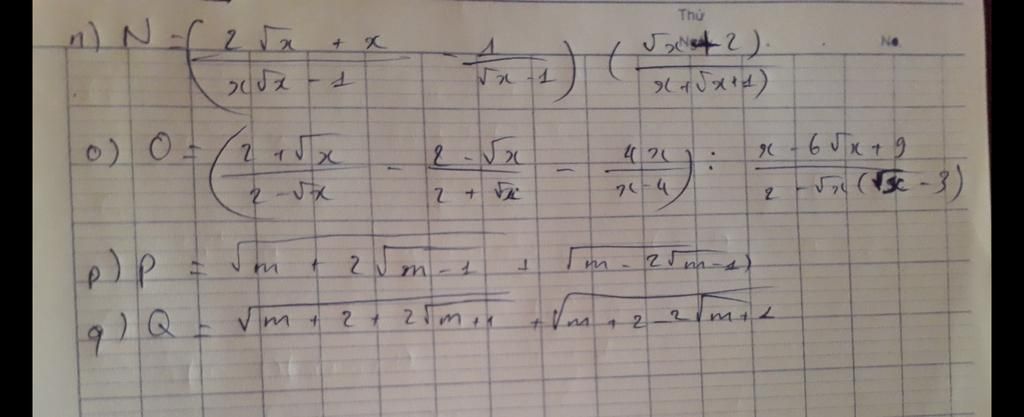 Thứ
No
n) N = ( (2√x + x)/(x√x - 1) - 1/(√x - 1) ) ( (√x + 2)/(x + √x + 1) )
o) O = ( (2 + √x)/(2 - √x) - (2 - √x)/(2 + √x) - 4x/(x - 4) ) : (x - 6√x + 9)/(2 - √x(√x - 3))
p) P = √(m + 2√(m - 1)) + √(m - 2√(m - 1))
q) Q = √(m + 2 + 2√(m + 1)) + √(m + 2 - 2√(m + 1))